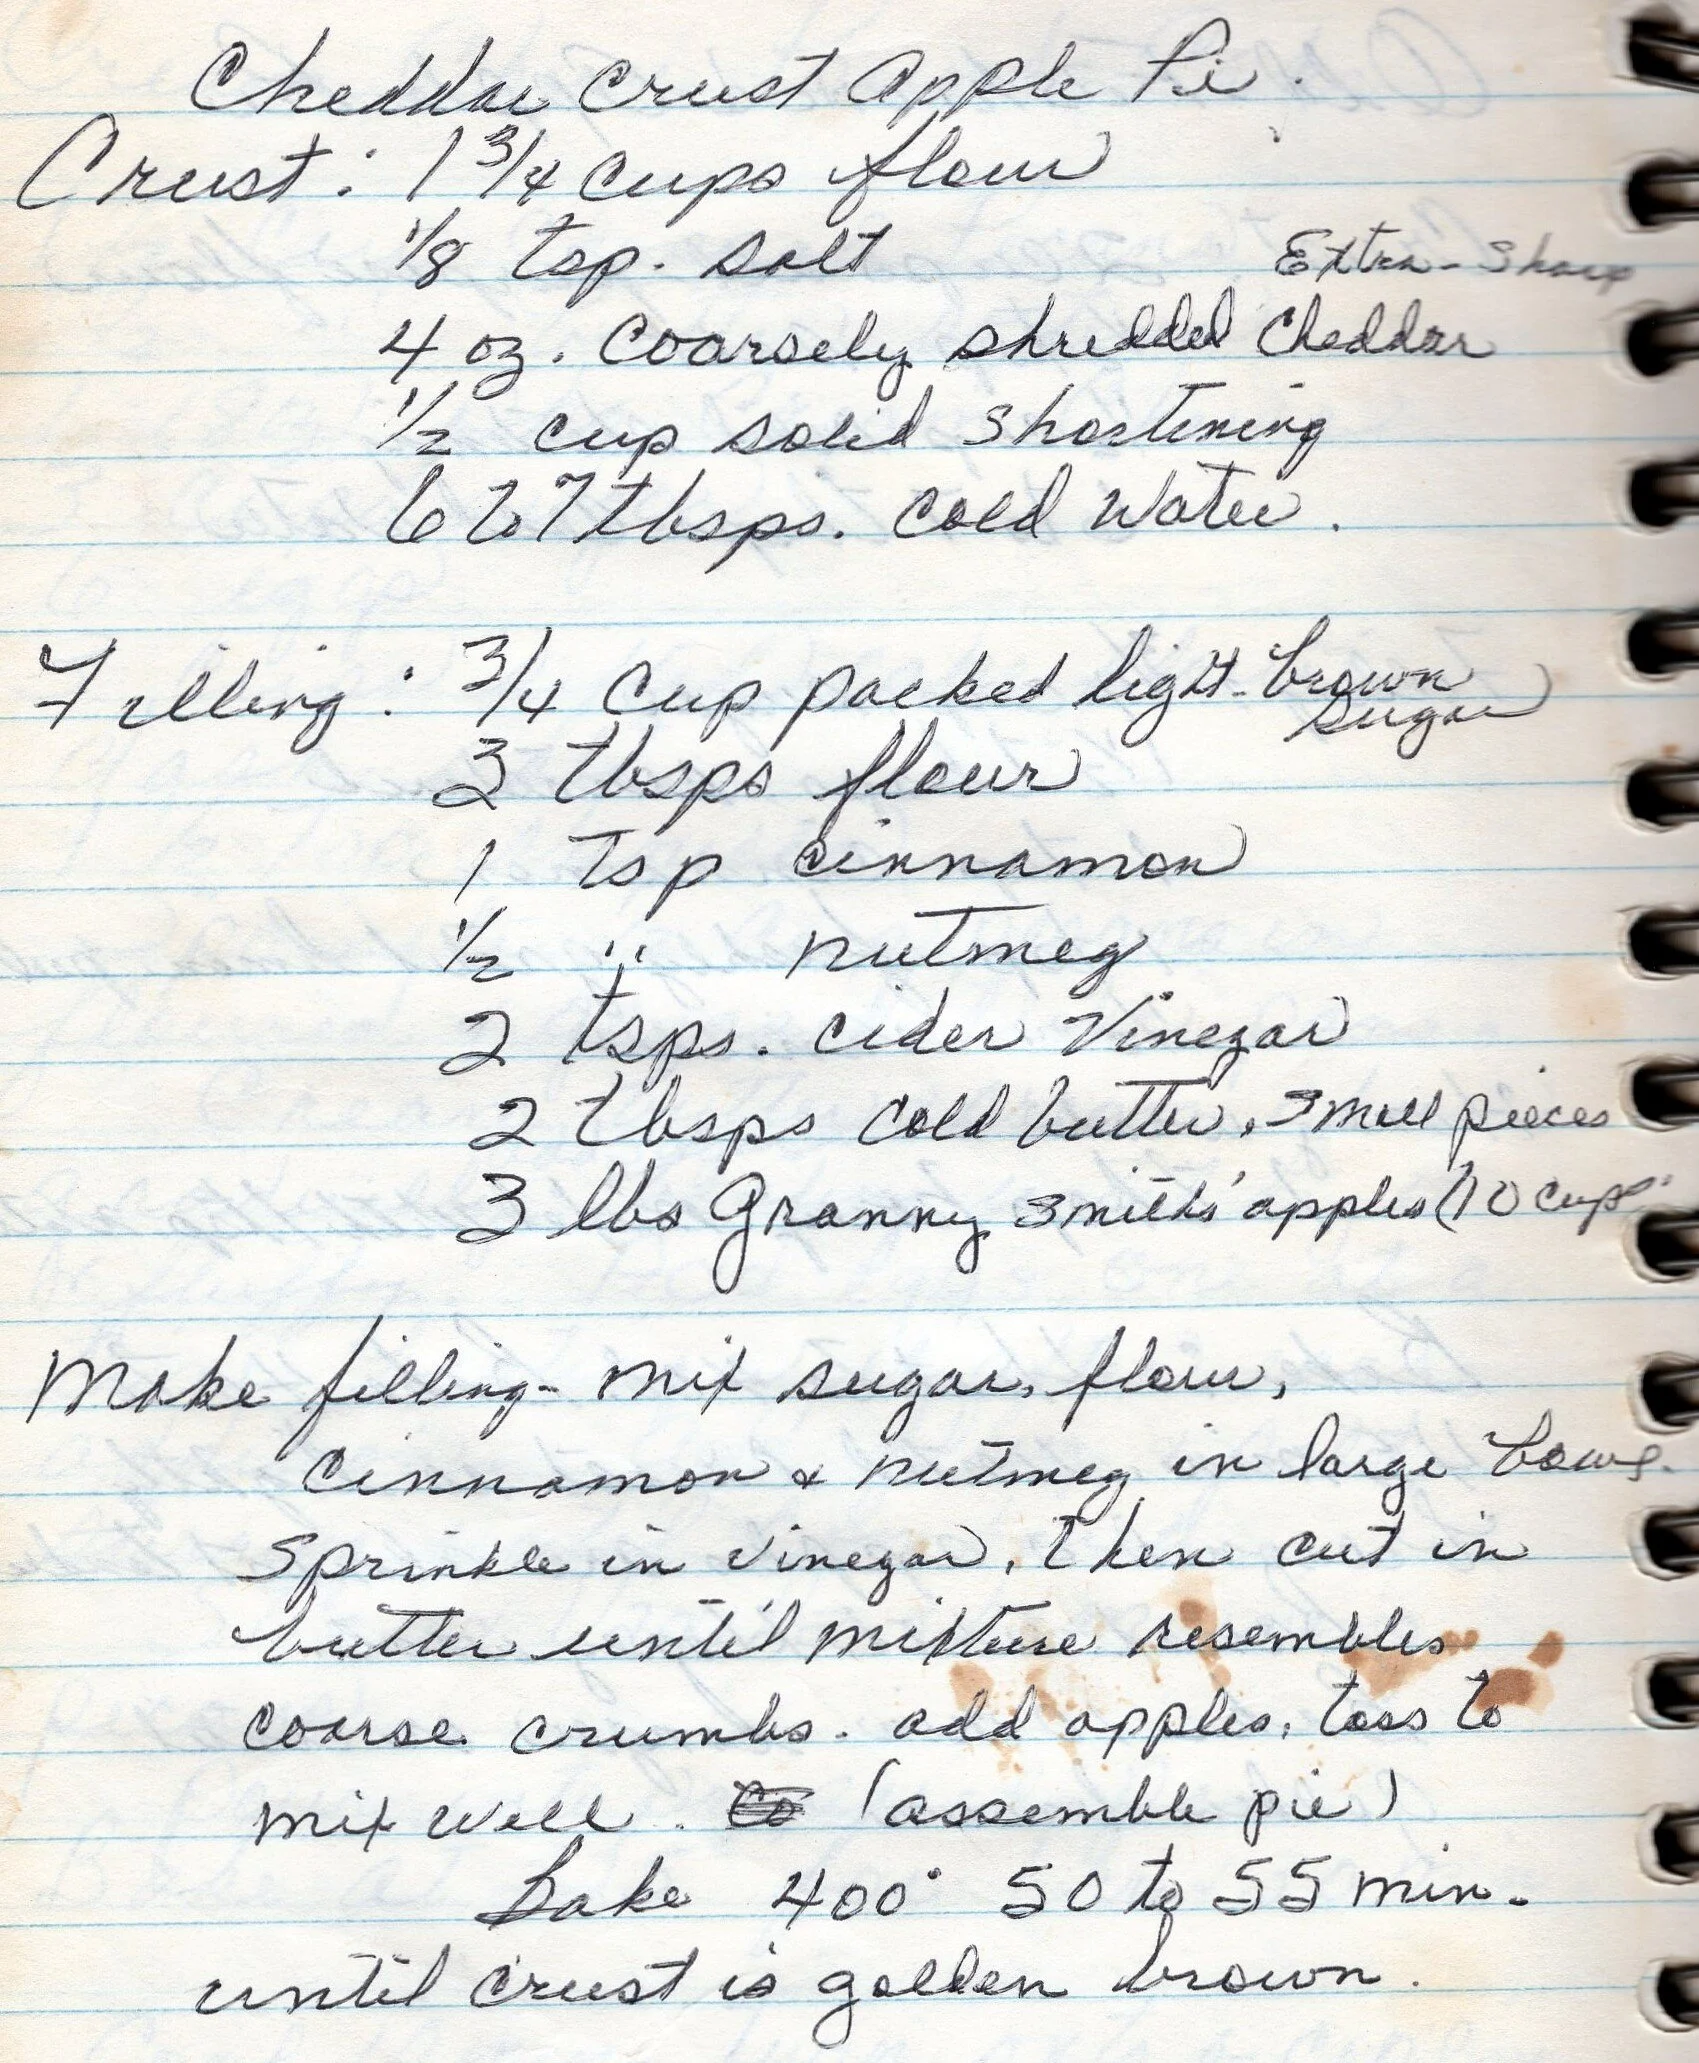 Cheddar Crust Apple Pie.
Crust: 1 3/4 cups flour
1/8 tsp. salt
Extra-Sharp
4 oz. coarsely shredded Cheddar
1/2 cup solid shortening
6 to 7 tbsps. cold water.
Filling: 3/4 cup packed light-brown
sugar
3 tbsps flour
1 tsp cinnamon
1/2 " nutmeg
2 tsps. cider vinegar
2 tbsps cold butter, small pieces
3 lbs Granny Smiths' apples (10 cups
Make filling- mix sugar, flour,
cinnamon & nutmeg in large bowl.
Sprinkle in vinegar, then cut in
butter until mixture resembles
coarse crumbs. add apples, toss to
mix well. (assemble pie)
Bake 400° 50 to 55 min.
until crust is golden brown.